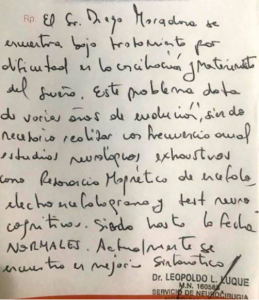 Rp. El Sr. Diego Maradona se
encuentra bajo tratamiento por
dificultad en la conciliación y mantenimiento
del sueño. Este problema data
de varios años de evolución, siendo
necesario realizar con frecuencia anual
estudios neurológicos exhaustivos
como Resonancia Magnética de encéfalo
electroencefalograma y test neuro
cognitivos. Siendo hasta la fecha
NORMALES. Actualmente se
encuentra en mejoría sintomática
Dr. LEOPOLDO L. LUQUE
M.N.
SERVICIO DE NEUROCIRUGIA